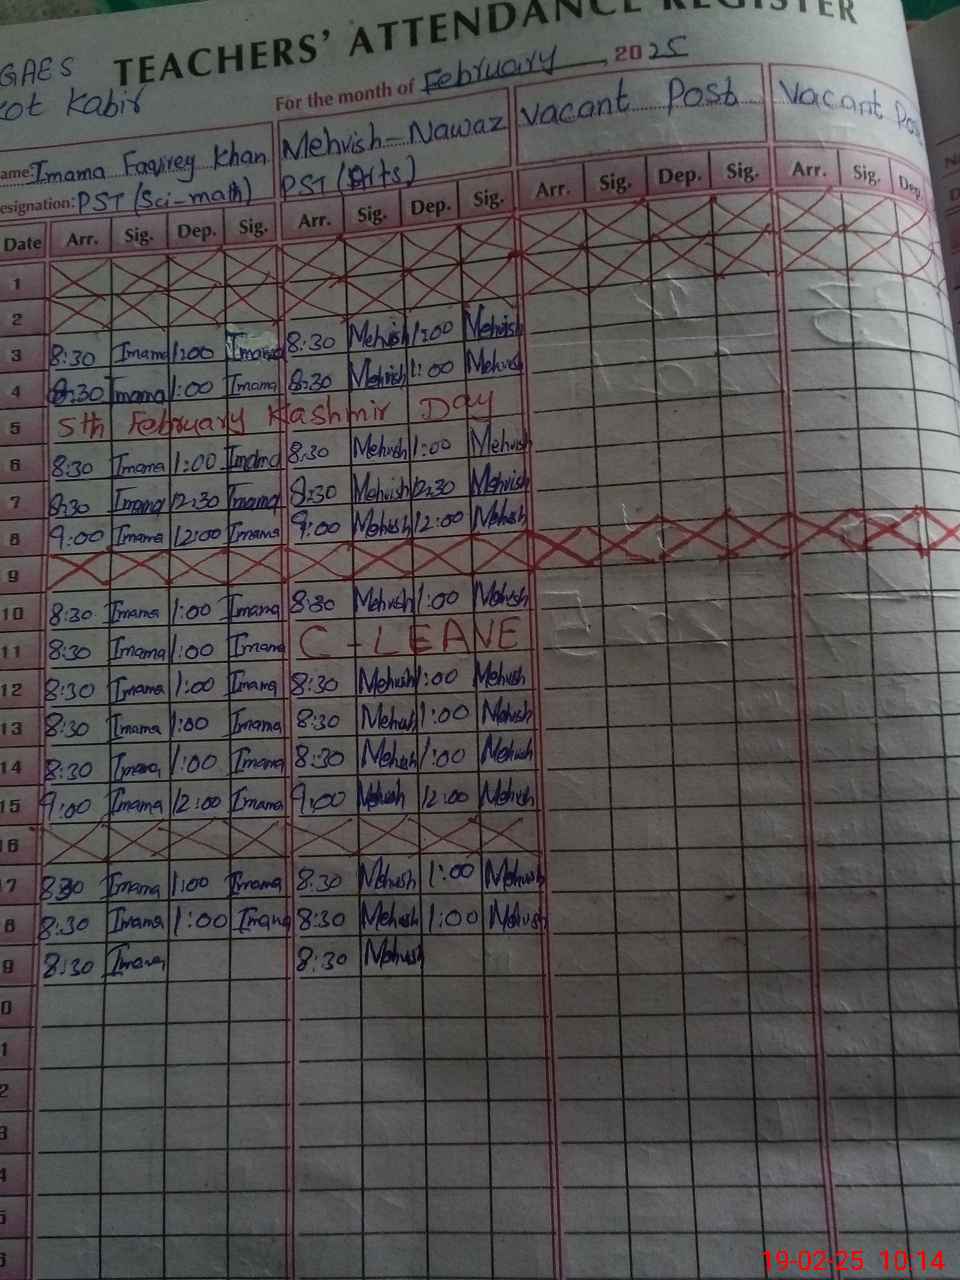 TEACHERS' ATTENDANCE REGISTER
GAES
Kot Kabir
For the month of February, 2025
Name: Imama Faqirey Khan Mehvish-Nawaz Vacant Post Vacant Post
Designation: PST (Sci-math) PST (Arts)
Date Arr. Sig. Dep. Sig. Arr. Sig. Dep. Sig. Arr. Sig. Dep. Sig. Arr. Sig. Dep.
1
2
3 8:30 Imama 1:00 Imama 8:30 Mehvish 1:00 Mehvish
4 8:30 Imama 1:00 Imama 8:30 Mehvish 1:00 Mehvish
5 5th February Kashmir Day
6 8:30 Imama 1:00 Imama 8:30 Mehvish 1:00 Mehvish
7 8:30 Imama 12:30 Imama 8:30 Mehvish 12:30 Mehvish
8 9:00 Imama 12:00 Imama 9:00 Mehvish 12:00 Mehvish
9
10 8:30 Imama 1:00 Imama 8:30 Mehvish 1:00 Mehvish
11 8:30 Imama 1:00 Imama C-LEAVE
12 8:30 Imama 1:00 Imama 8:30 Mehvish 1:00 Mehvish
13 8:30 Imama 1:00 Imama 8:30 Mehvish 1:00 Mehvish
14 8:30 Imama 1:00 Imama 8:30 Mehvish 1:00 Mehvish
15 9:00 Imama 12:00 Imama 9:00 Mehvish 12:00 Mehvish
16
17 8:30 Imama 1:00 Imama 8:30 Mehvish 1:00 Mehvish
18 8:30 Imama 1:00 Imama 8:30 Mehvish 1:00 Mehvish
19 8:30 Imama 8:30 Mehvish
0
1
2
3
4
5
6
19-02-25 10:14